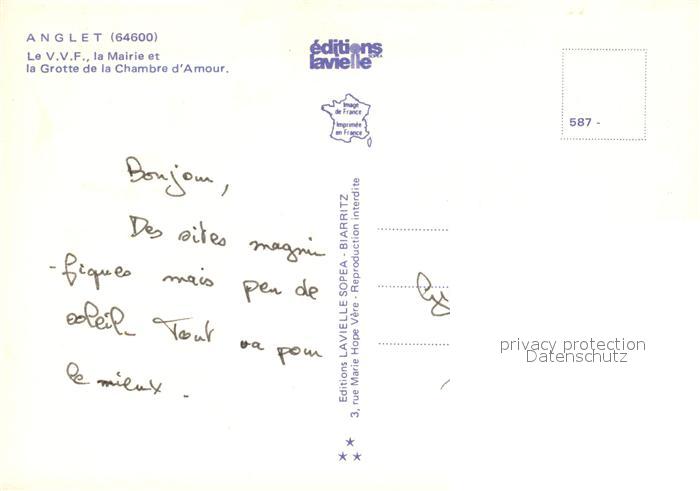 ANGLET (64600)
Le V.V.F., la Mairie et
la Grotte de la Chambre d'Amour.
éditions
lavielle
Image
de France
Imprimée
en France
587 -
Bonjour,
Des sites magni
-fiques mais peu de
soleil. Tout va pour
le mieux.
Editions LAVIELLE SOPEA - BIARRITZ
3, rue Marie Hope Vère - Reproduction interdite
privacy protection
Datenschutz